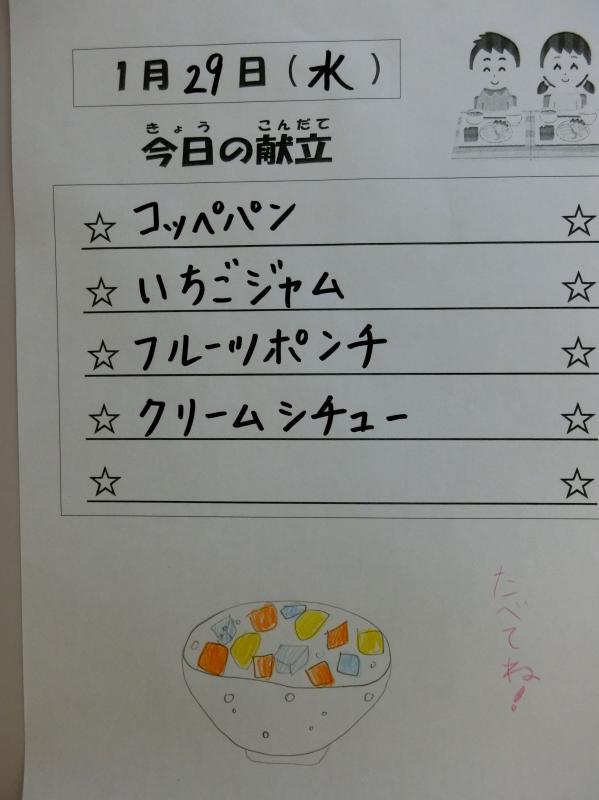 1月29日(水)
きょう こんだて
今日の献立
☆ コッペパン ☆
☆ いちごジャム ☆
☆ フルーツポンチ ☆
☆ クリームシチュー ☆
☆ ☆
たべてね!